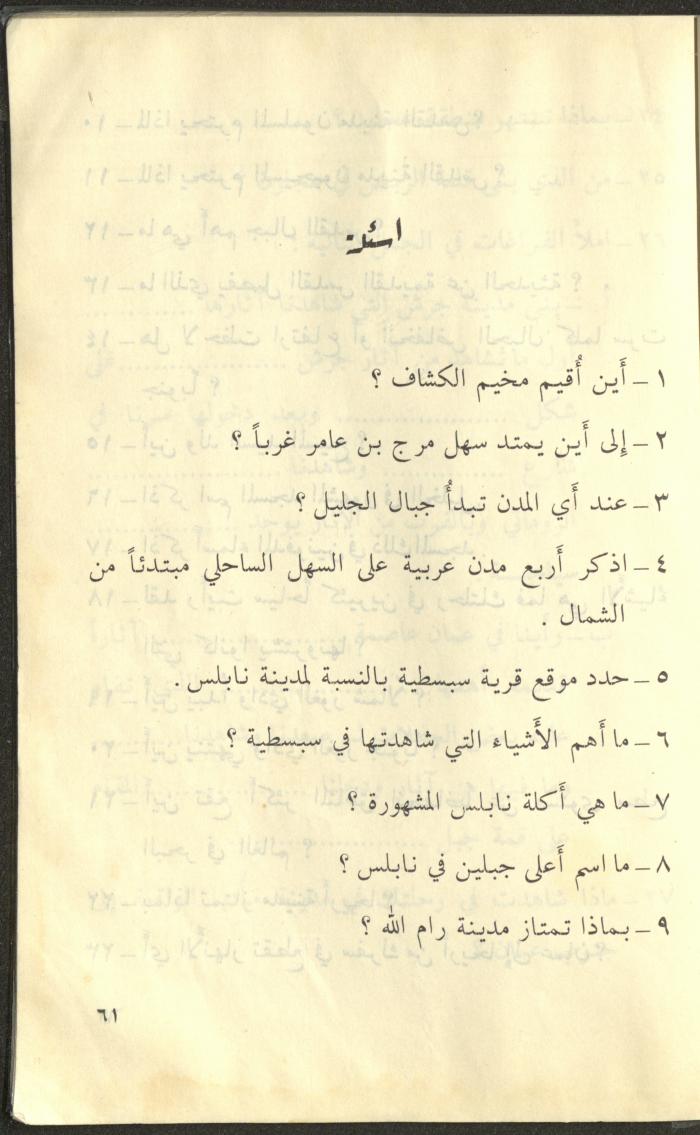 اسئلة
١ ـ أَين أُقيم مخيم الكشاف ؟
٢ ـ إِلى أَين يمتد سهل مرج بن عامر غرباً ؟
٣ ـ عند أَي المدن تبدأُ جبال الجليل ؟
٤ ـ اذكر أَربع مدن عربية على السهل الساحلي مبتدئاً من
الشمال .
٥ ـ حدد موقع قرية سبسطية بالنسبة لمدينة نابلس .
٦ ـ ما أَهم الأَشياء التي شاهدتها في سبسطية ؟
٧ ـ ما هي أَكلة نابلس المشهورة ؟
٨ ـ ما اسم أَعلى جبلين في نابلس ؟
٩ ـ بماذا تمتاز مدينة رام الله ؟
٦١